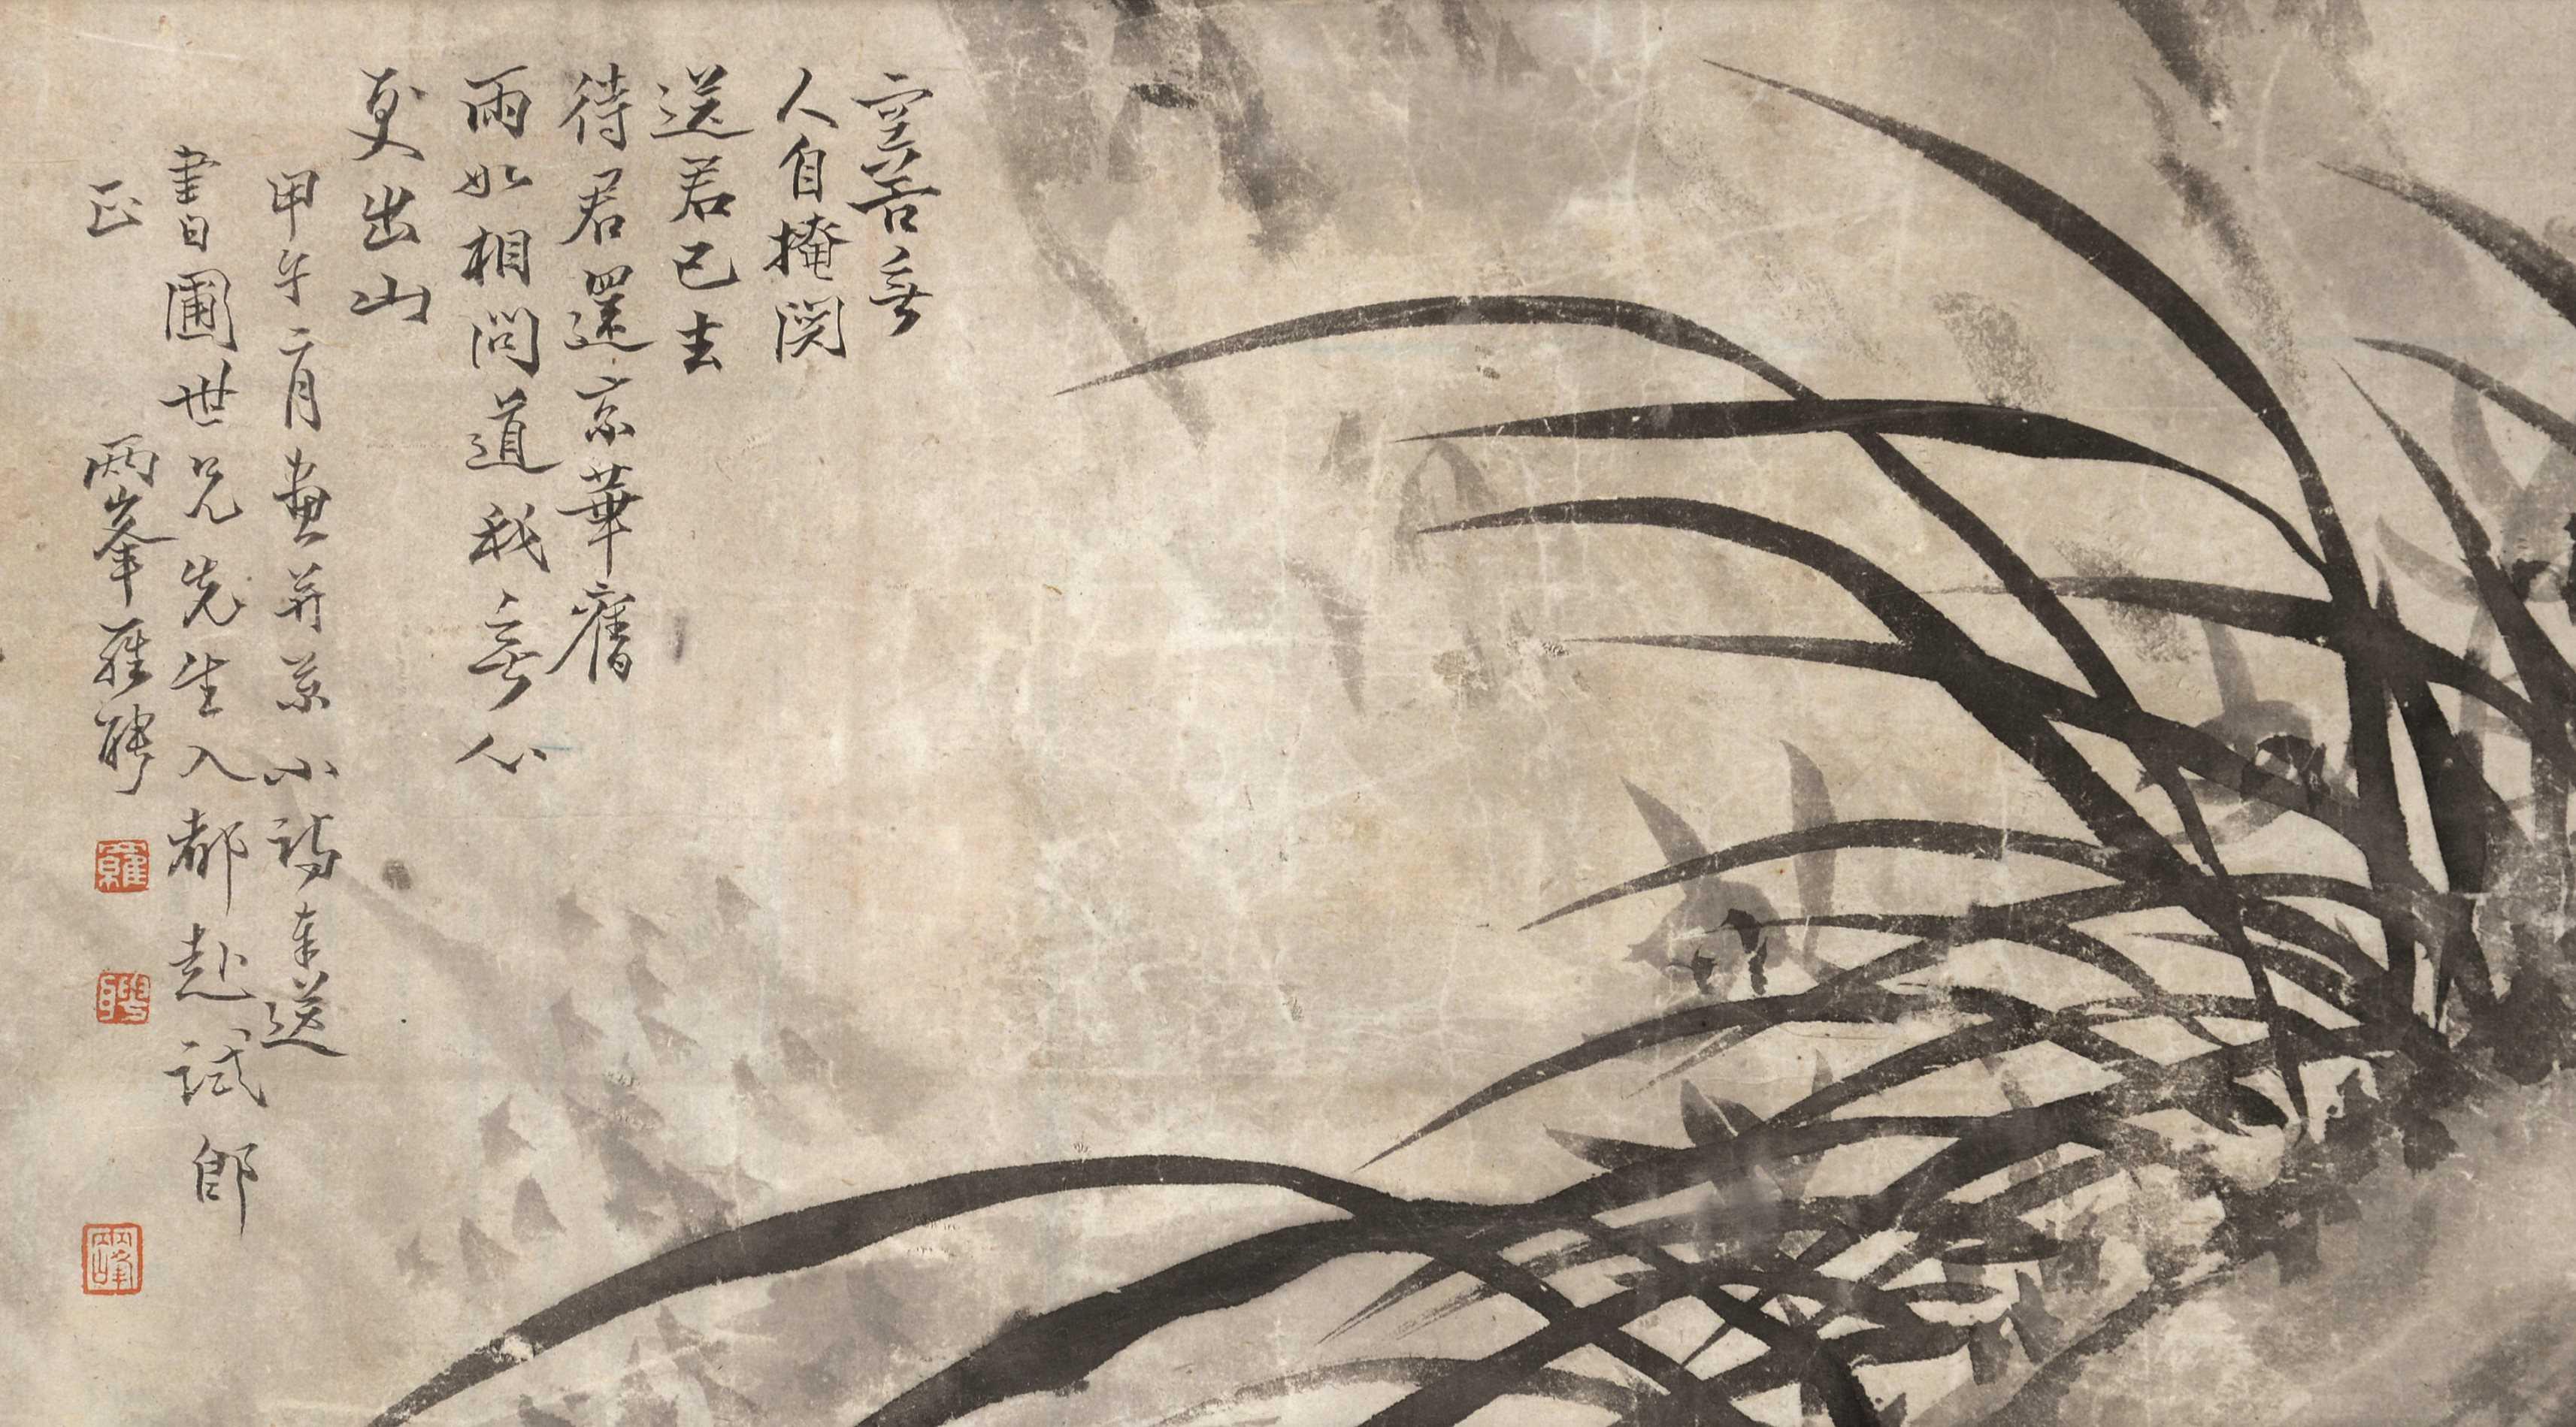 空谷無
人自掩関
送君已去
待君還京華舊
雨如相問道我無心
更出山
甲午二月畫并系小詩奉送
書圃世兄先生入都赴試即
正 兩峯羅聘
羅
聘
兩峰